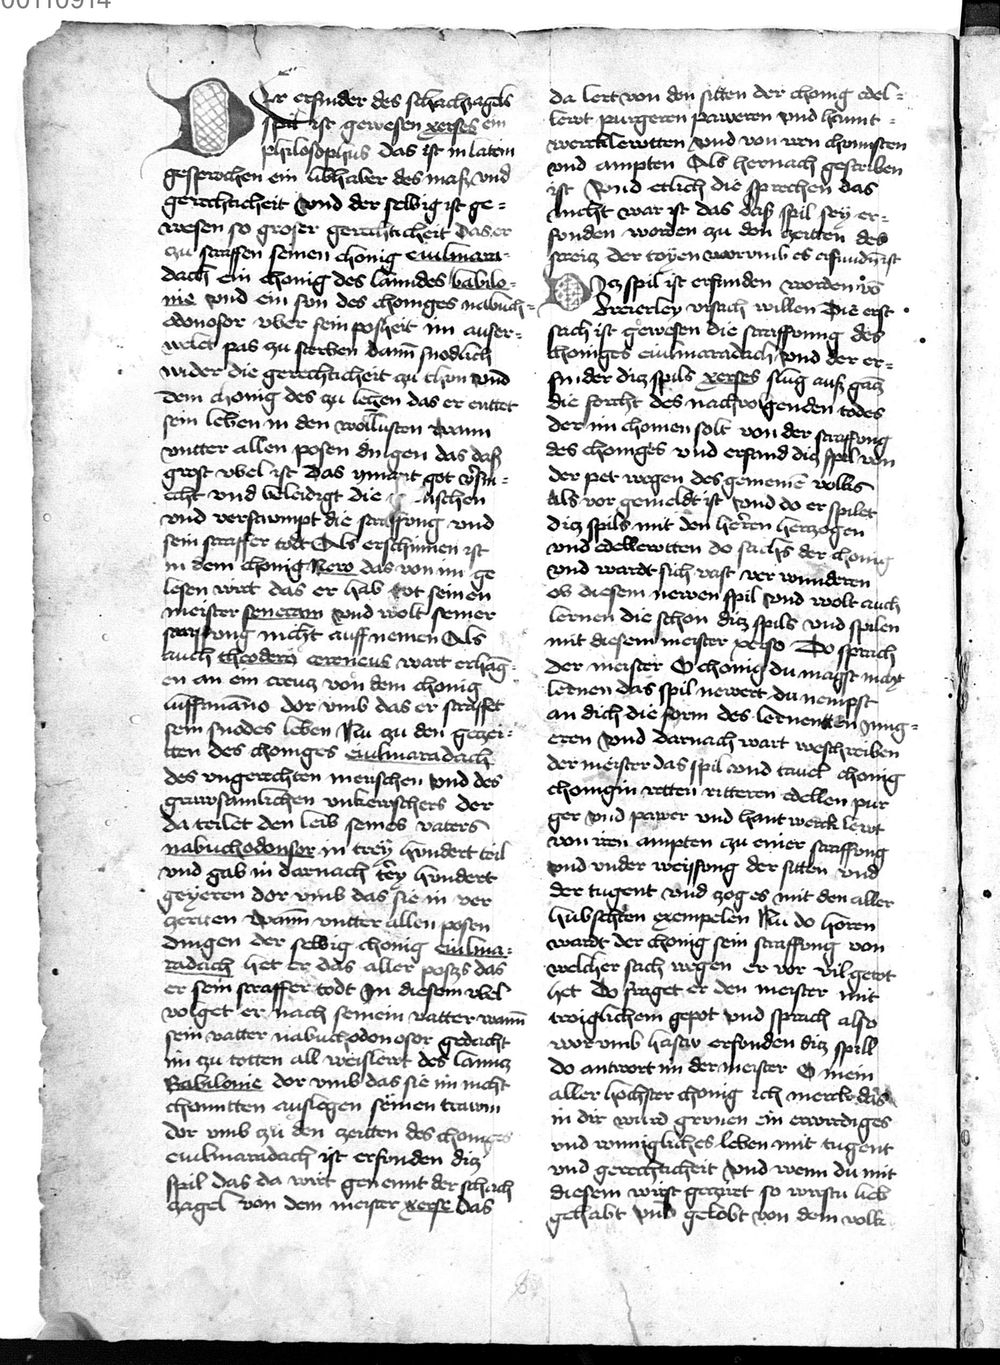 00110914
Der erfinder des schachzagels
spil ist gewesen xerses ein
philosophus das ist in latein
gesprochen ein libhaber des mass vnd
gerechticheit Vnd der selbig ist ge=
wesen so groser gerechticheit das er
zu straffen seinen chonig euilmara=
dach ein chonig des lanndes babilo=
nie vnd ein sun des choniges nabuch=
odonosor vber sein posheit im auser=
welet pas zu sterben dann snodlich
wider die gerechticheit zu thun vnd
dem chonig des zu leczen das er enttet
sein leben in den wollusten wann
vntter allen posen dingen das daß
grost vbel ist das ymant got versm=
echt vnd beleidigt die menschen
vnd versaumpt die straffung vnd
sein straffer todt Als erschinnen ist
in dem chonig Nero das von im ge
lesen wirt das er hab tot seinen
meister senecam vnd wolt seiner
straffung nicht auff nemen Als
auch theodero cereneus wart erhang=
en an ein creucz von dem chonig
luffimano dor vmb das er straffet
sein snodes leben Nu zu den geczei=
tten des choniges euilmaradach
des vngerechten menschen vnd des
grawsamlichen vnkewschers der
da teilet den leib seines vaters
nabuchodonsor in trey hundert teil
vnd gab in darnach trey hundert
geyeren dor vmb das sie in ver
zerten wann vntter allen posen
dingen der selbig chonig euilma=
radach het er das aller poszs das
er sein straffer todt In diesem vbel
volget er nach seinem vatter wann
sein vatter nabuchodonosor gedacht
im zu totten all weislewt des lanncz
Babilonie dor vmb das sie im nicht
chonntten auslegen seinen trawm
dor vmb zu den zeitten des choniges
euilmaradach ist erfunden dicz
spil das da wirt genennt der schach
zagel von dem meister xerse das
da lert von den sitten der chonig edel=
lewt purgeren pawren vnd hannt=
wercklewtten vnd von iren chunsten
vnd ampten Als hernach gescriben
ist Vnd etlich die sprechen das
nicht war ist das daß spil sey er=
funden worden zu den zeitten des
streicz der troyen worvmb es erfunden ist
Dicz spil ist erfunden worden vo
dreierley vrsach willen Die erst
sach ist gewesen die straffung des
choniges euilmaradach Vnd der er=
finder dicz spils xerses slug auß gancz
die forcht des nachvolgenden todes
der im chomen solt von der straffung
des choniges vnd erfand dicz spil von
der pet wegen des gemeinen volks
Als vor gemeldt ist Vnd do er spilet
dicz spils mit den herren herczogen
vnd edellewtten do sachs der chonig
vnd wardt sich vast verwunderen
ob diesem newen spil Vnd wolt auch
lernen die schon dicz spils vnd spilen
mit diesem meister xerso Do sprach
der meister O chonig du magst nicht
lernen das spil newert du nempst
an dich die form des lernentten Jung=
eren Vnd darnach wart beschreiben
der meister das spil vnd tauel chonig
chonigin rotten ritteren edellen pur
ger vnd pawer vnd hant werck lewt
von iren ampten zu einer straffung
vnd vnder weyssung der sitten vnd
der tugent vnd zog es mit den aller
hubschten exempelen Nu do horen
wardt der chonig sein straffung von
welcher sach wegen er vor vil getot
het Do fraget er den meister mit
troiglichem gepot vnd sprach also
worvmb hastw erfunden dicz spill
do antwort im der meister O mein
aller hochster chonig ich merck das
in dir wurd grunen ein erwirdiges
vnd wunigliches leben mit tugent
vnd gerechticheit Vnd wenn du mit
diesem wirst geczirt so wirstu lieb
gehabt vnd gelobt von dem volk